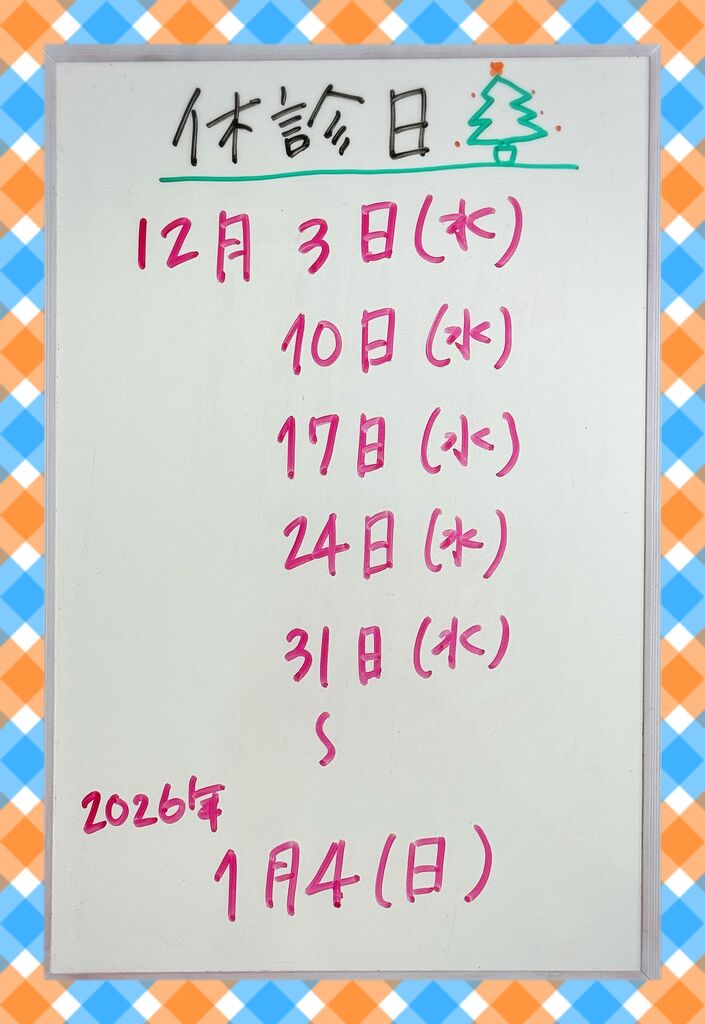 休診日
12月 3日(水)
10日(水)
17日(水)
24日(水)
31日(水)
〜
2026年
1月4(日)